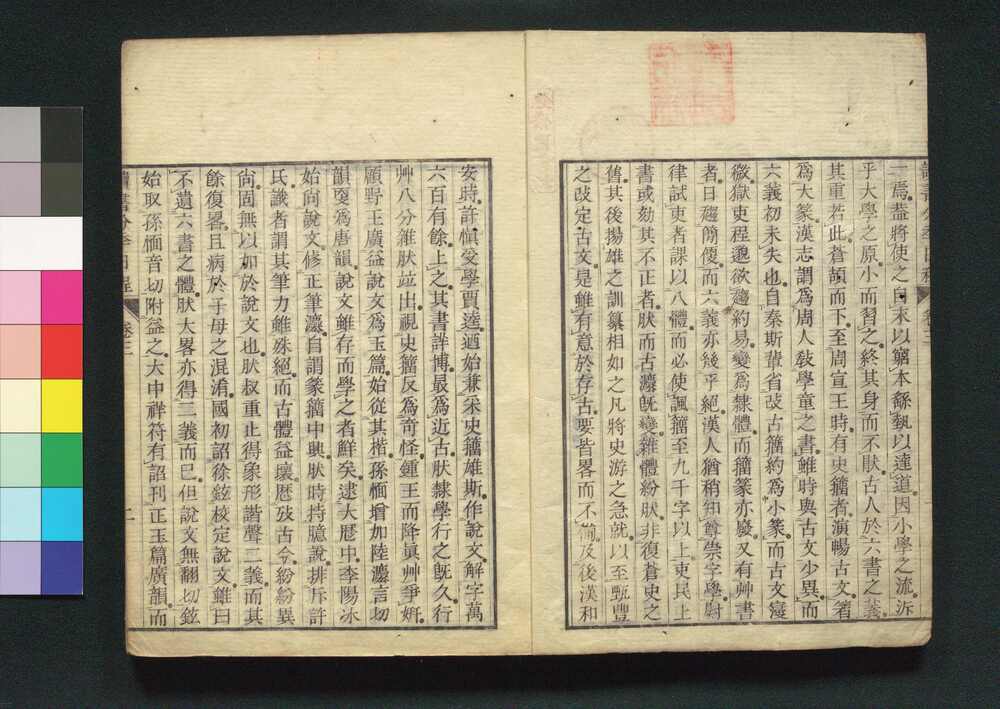 讀書分年日程 卷三
一焉蓋將使之自末以窮本繇埶以達道因小學之流泝
乎大學之原小而習之終其身而不猒古人於六書之義
其重若此蒼頡而下至周宣王時有史籒者演暢古文著
爲大篆漢志謂爲周人敎學童之書雖時與古文少異而
六義初未失也自秦斯輩省改古籒約爲小篆而古文寖
微獄吏程邈欲趨約易變爲隷體而籒篆亦廢又有艸書
者日趨簡便而六義亦幾乎絕漢人猶稍知尊崇字學尉
律試吏者課以八體而必使諷籒至九千字以上吏民上
書或劾其不正者肰而古灋旣變雜體紛肰非復蒼史之
舊其後揚雄之訓纂相如之凡將史游之急就以至甄豐
之改定古文是雖有意於存古要皆畧而不備及後漢和
安時許慎受學賈逵迺始兼采史籒雄斯作說文解字萬
六百有餘上之其書詳博最爲近古肰隷學行之旣久行
艸八分雜肰竝出視史籒反爲奇怪鍾王而降眞艸爭姸
顧野王廣益說文爲玉篇始從其楷孫愐增加陸灋言切
韻更爲唐韻說文雖存而學之者鮮矣逮大曆中李陽冰
始尙說文修正筆灋自謂篆籒中興肰時持臆說排斥許
氏識者謂其筆力雖殊絕而古體益壞厯攷古今紛紛異
尙固無以如於說文也肰叔重止得象形諧聲二義而其
餘復畧且病於子母之混淆國初詔徐鉉校定說文雖曰
不遺六書之體肰大畧亦得二義而已但說文無翻切鉉
始取孫愐音切附益之大中祥符有詔刊正玉篇廣韻而
讀書分年日程 卷三 二